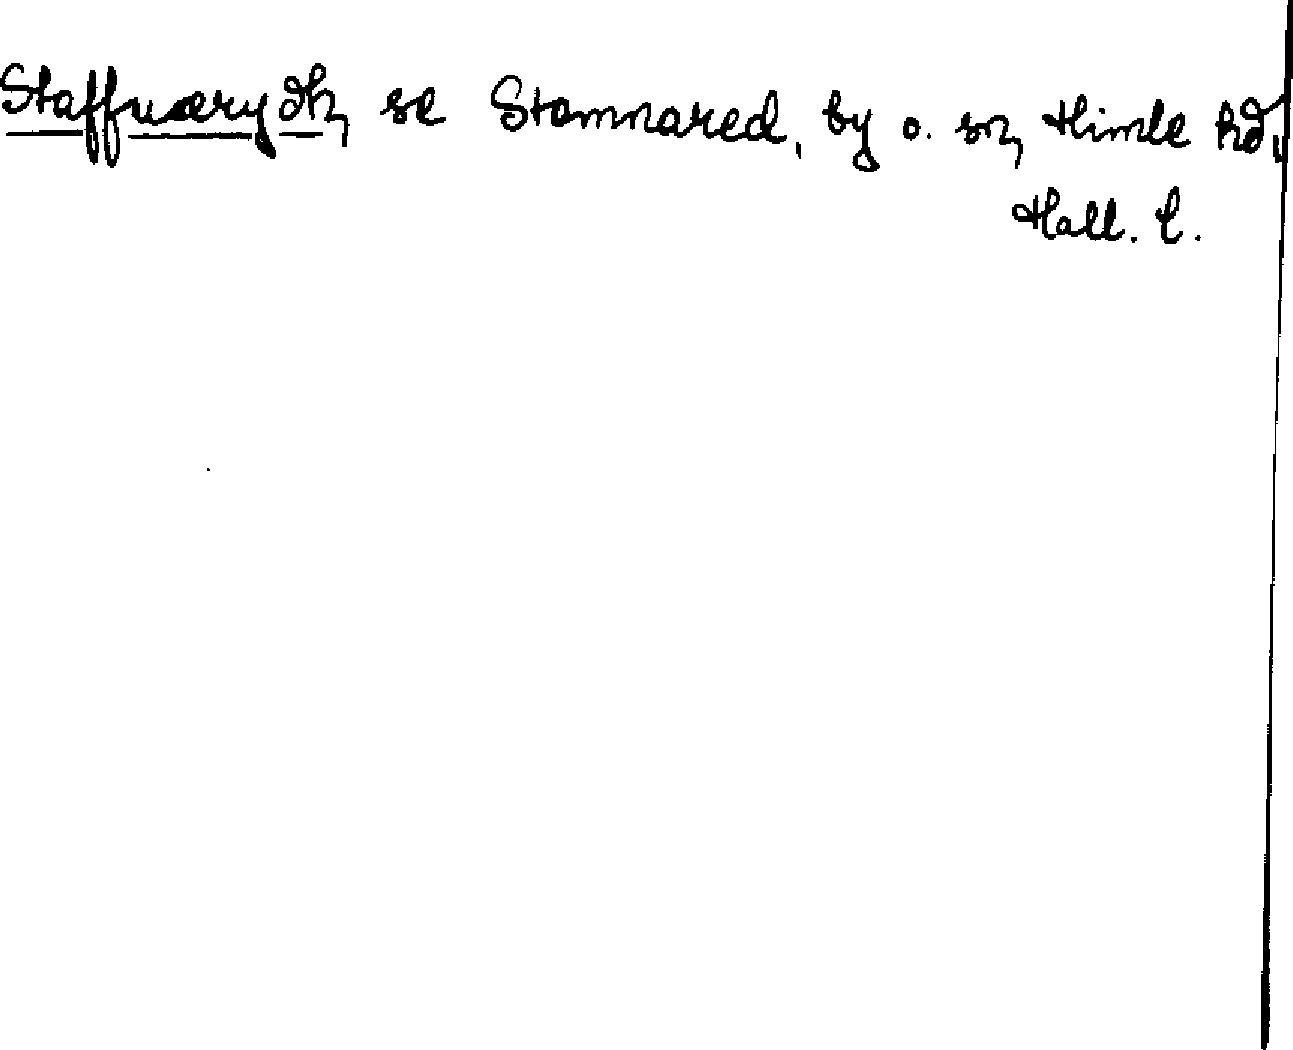 Staffusæryd k, se Stomnared, by o. sn, Himle hd,
Hall. l.